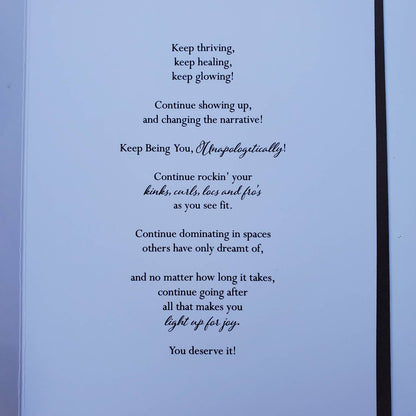 Keep thriving,
keep healing,
keep glowing!
Continue showing up,
and changing the narrative!
Keep Being You, Unapologetically!
Continue rockin' your
kinks, curls, locs and fro's
as you see fit.
Continue dominating in spaces
others have only dreamt of,
and no matter how long it takes,
continue going after
all that makes you
light up for joy.
You deserve it!